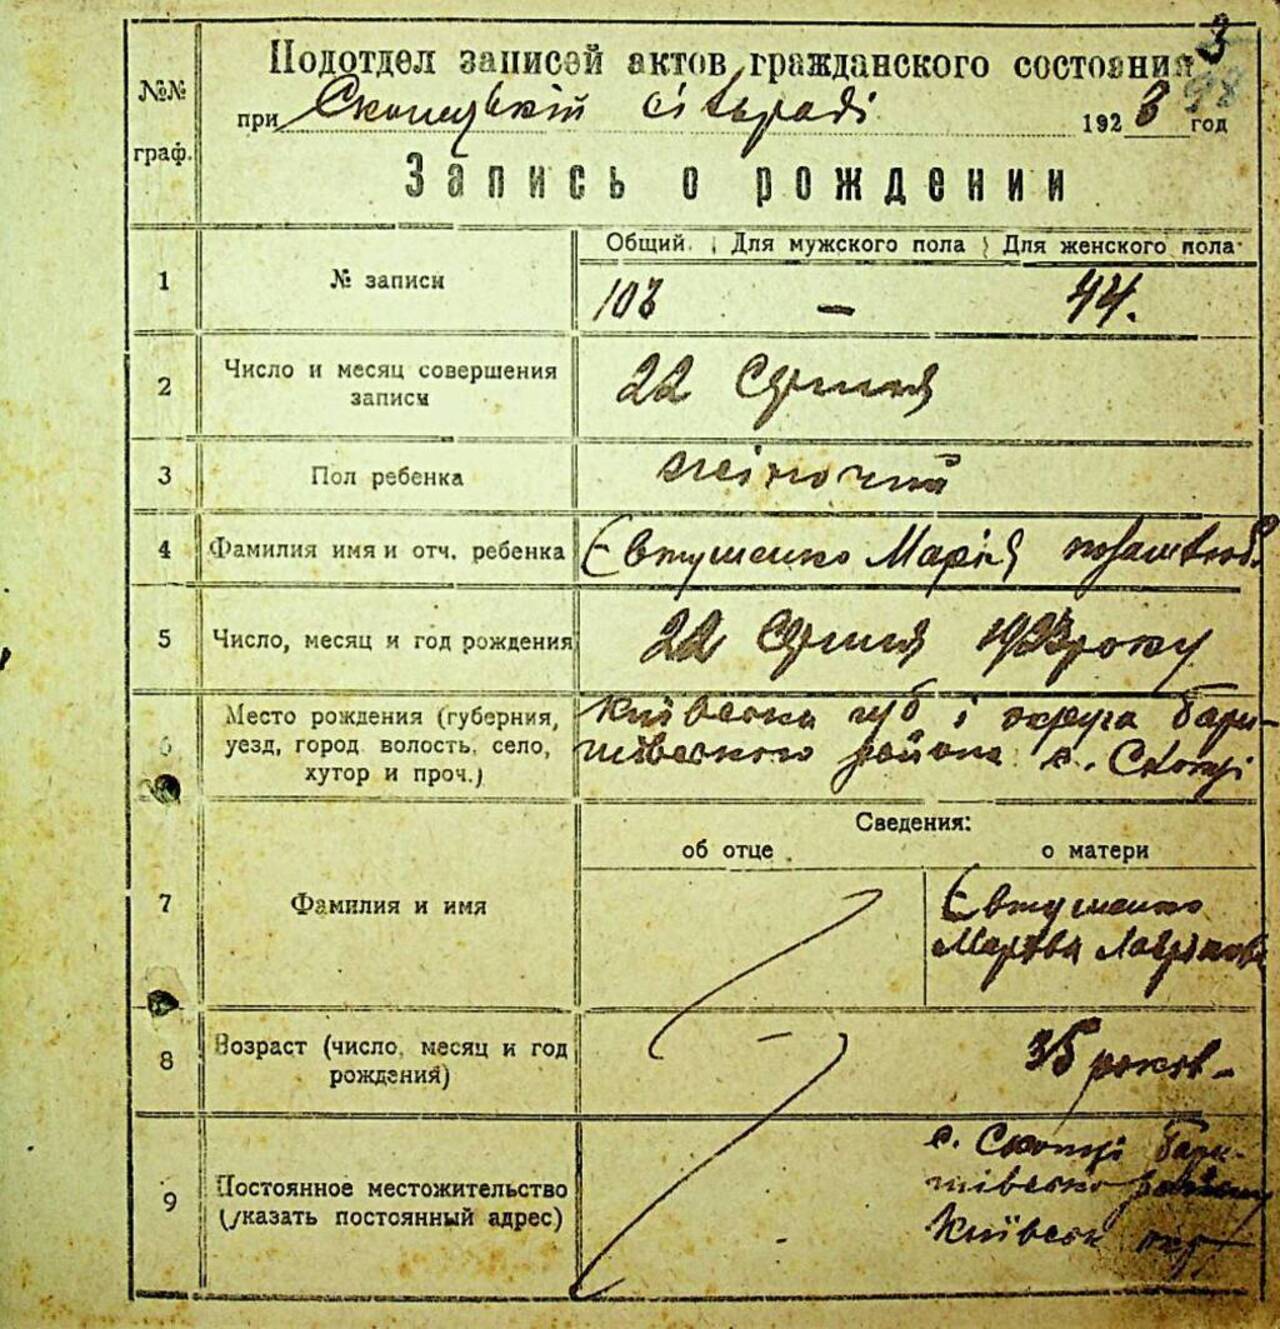 3
98
№№
граф.
Подотдел записей актов гражданского состояния
при Скопецькій сільраді 1923 год
Запись о рождении
Общий. Для мужского пола Для женского пола
1 № записи 103 — 44.
2 Число и месяц совершения
записи 22 Серпня
3 Пол ребенка жіночий
4 Фамилия имя и отч. ребенка Євтушенко Марія позашлюб.
5 Число, месяц и год рождения 22 Серпня 1923 року
6 Место рождения (губерния,
уезд, город волость, село,
хутор и проч.)
Київська губ і округа Бари-
шівського района с. Скопці
Сведения:
об отце о матери
7 Фамилия и имя
Євтушенко
8 Возраст (число, месяц и год
рождения) — 35 років -
9 Постоянное местожительство
(указать постоянный адрес)
с. Скопці Бари-
шівсько району
Київськ окр